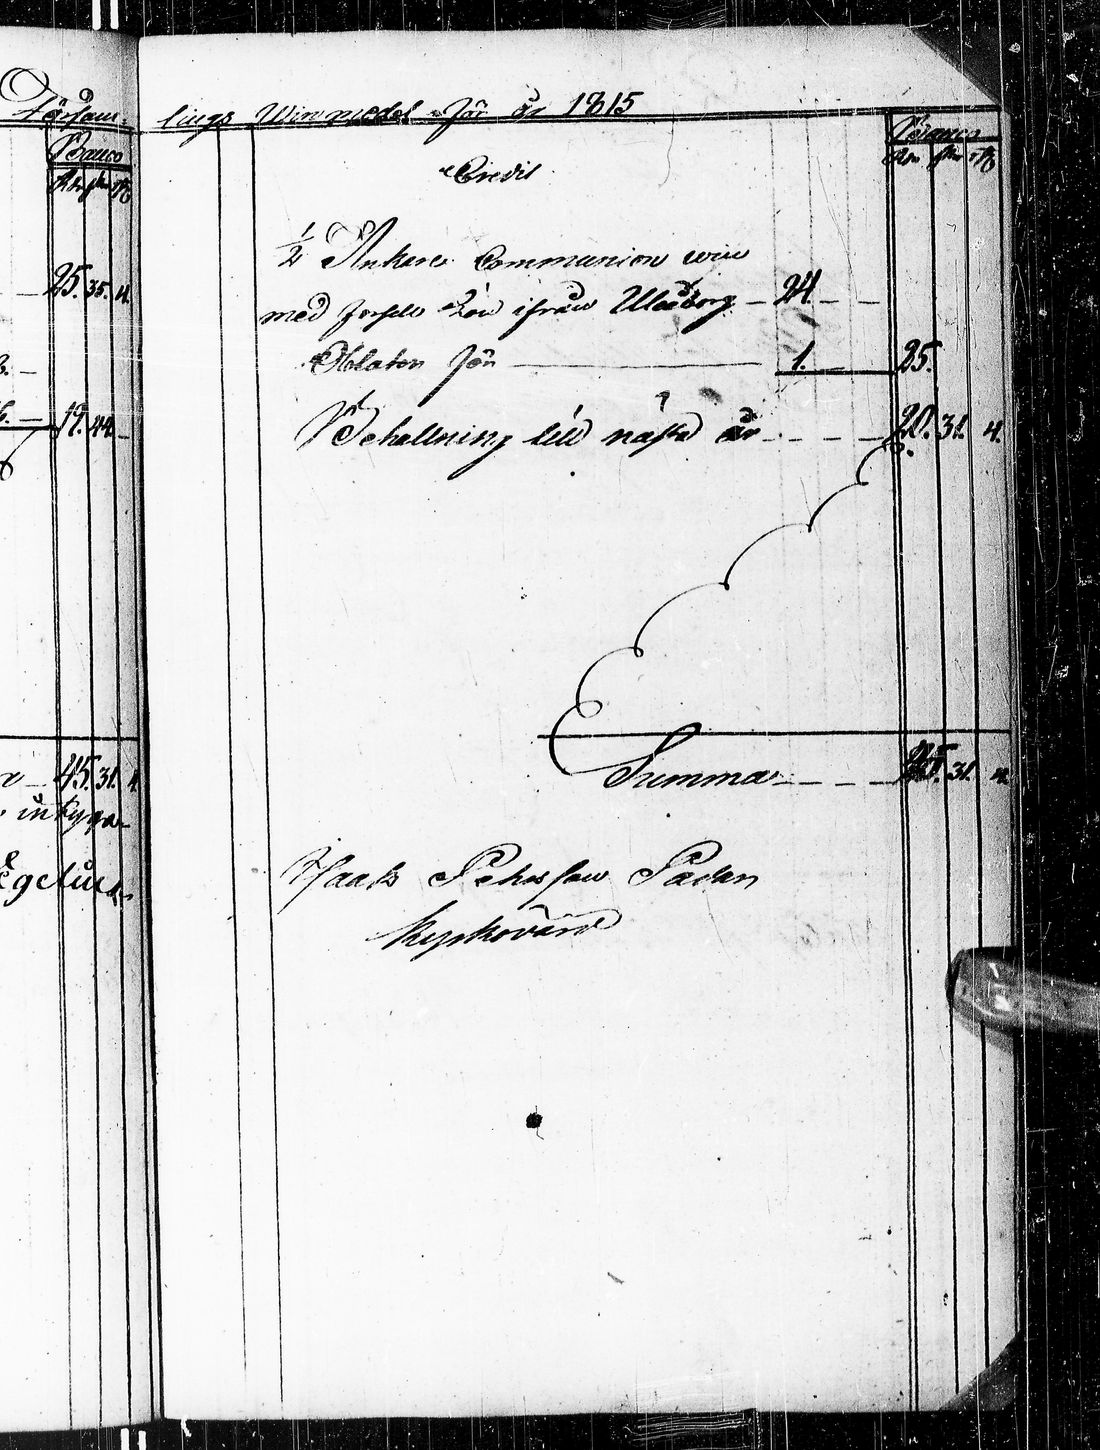 Försam
Banco
25. 35. 4.
19. 44. –
45. 31. 4.
intyga
lings Winmedel för år 1815
Banco
Credit
½ Ankare Communion win
med ifrån Uleåborg – 24 – –
Oblater för — 1. — 25.
Behållning till nästa år – – – 20. 31. 4.
Summa – – – 45. 31. 4.
Isaak Pehrsson Padan
kyrkovärd